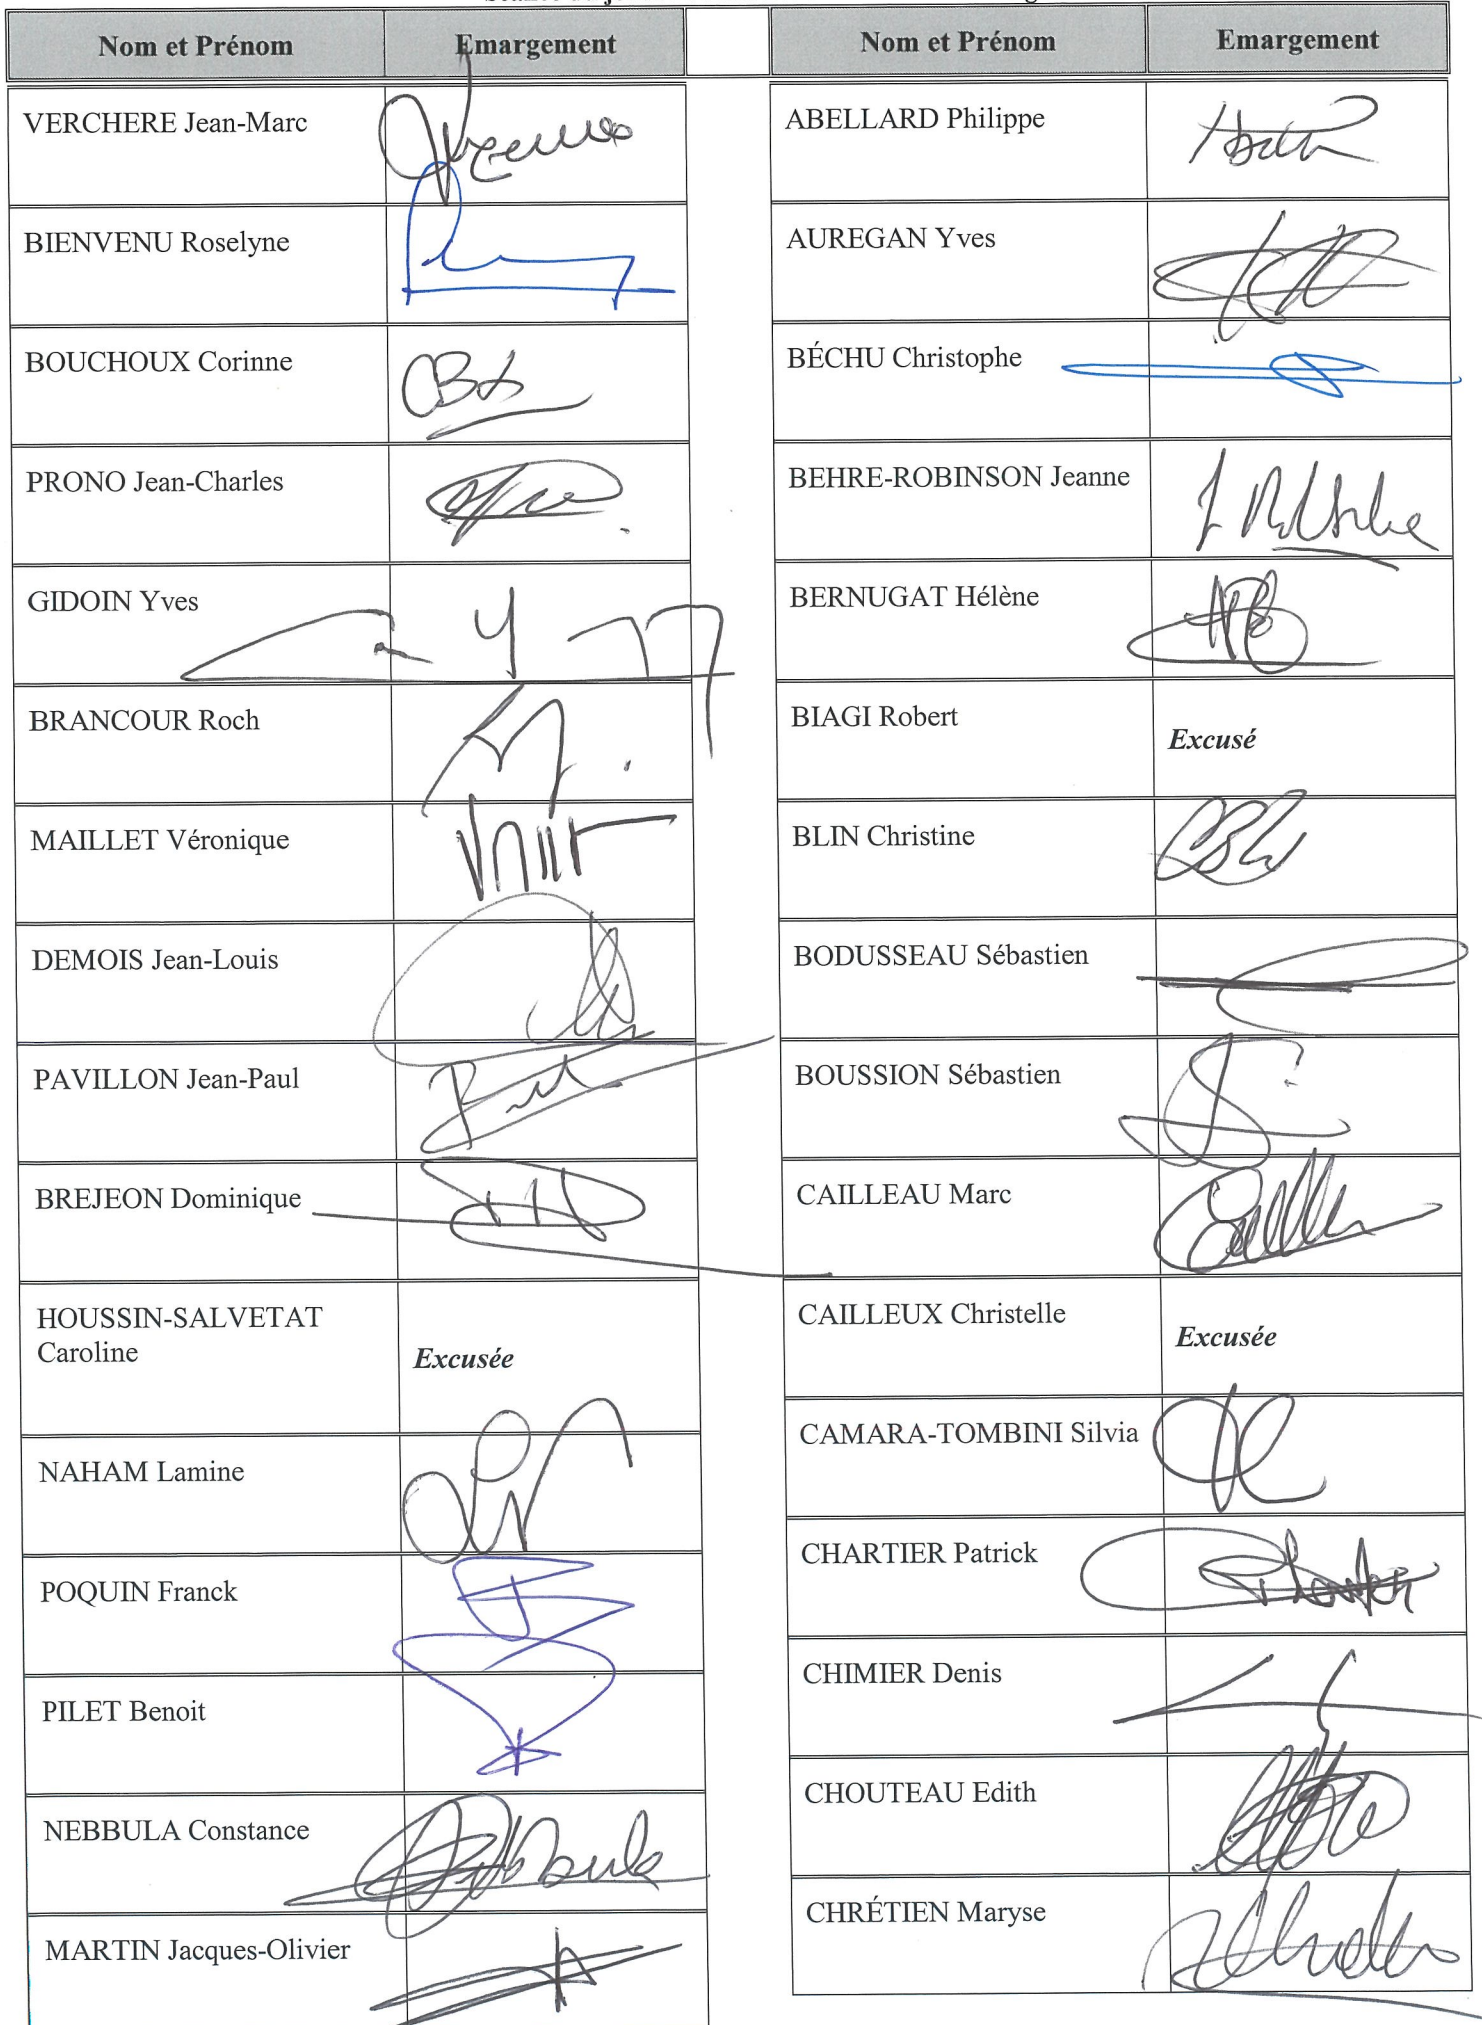 Nom et Prénom Emargement Nom et Prénom Emargement
VERCHERE Jean-Marc
BIENVENU Roselyne
BOUCHOUX Corinne
PRONO Jean-Charles
GIDOIN Yves
BRANCOUR Roch
MAILLET Véronique
DEMOIS Jean-Louis
PAVILLON Jean-Paul
BREJEON Dominique
HOUSSIN-SALVETAT
Caroline
Excusée
NAHAM Lamine
POQUIN Franck
PILET Benoit
NEBBULA Constance
MARTIN Jacques-Olivier
ABELLARD Philippe
AUREGAN Yves
BÉCHU Christophe
BEHRE-ROBINSON Jeanne
BERNUGAT Hélène
BIAGI Robert
Excusé
BLIN Christine
BODUSSEAU Sébastien
BOUSSION Sébastien
CAILLEAU Marc
CAILLEUX Christelle
Excusée
CAMARA-TOMBINI Silvia
CHARTIER Patrick
CHIMIER Denis
CHOUTEAU Edith
CHRÉTIEN Maryse